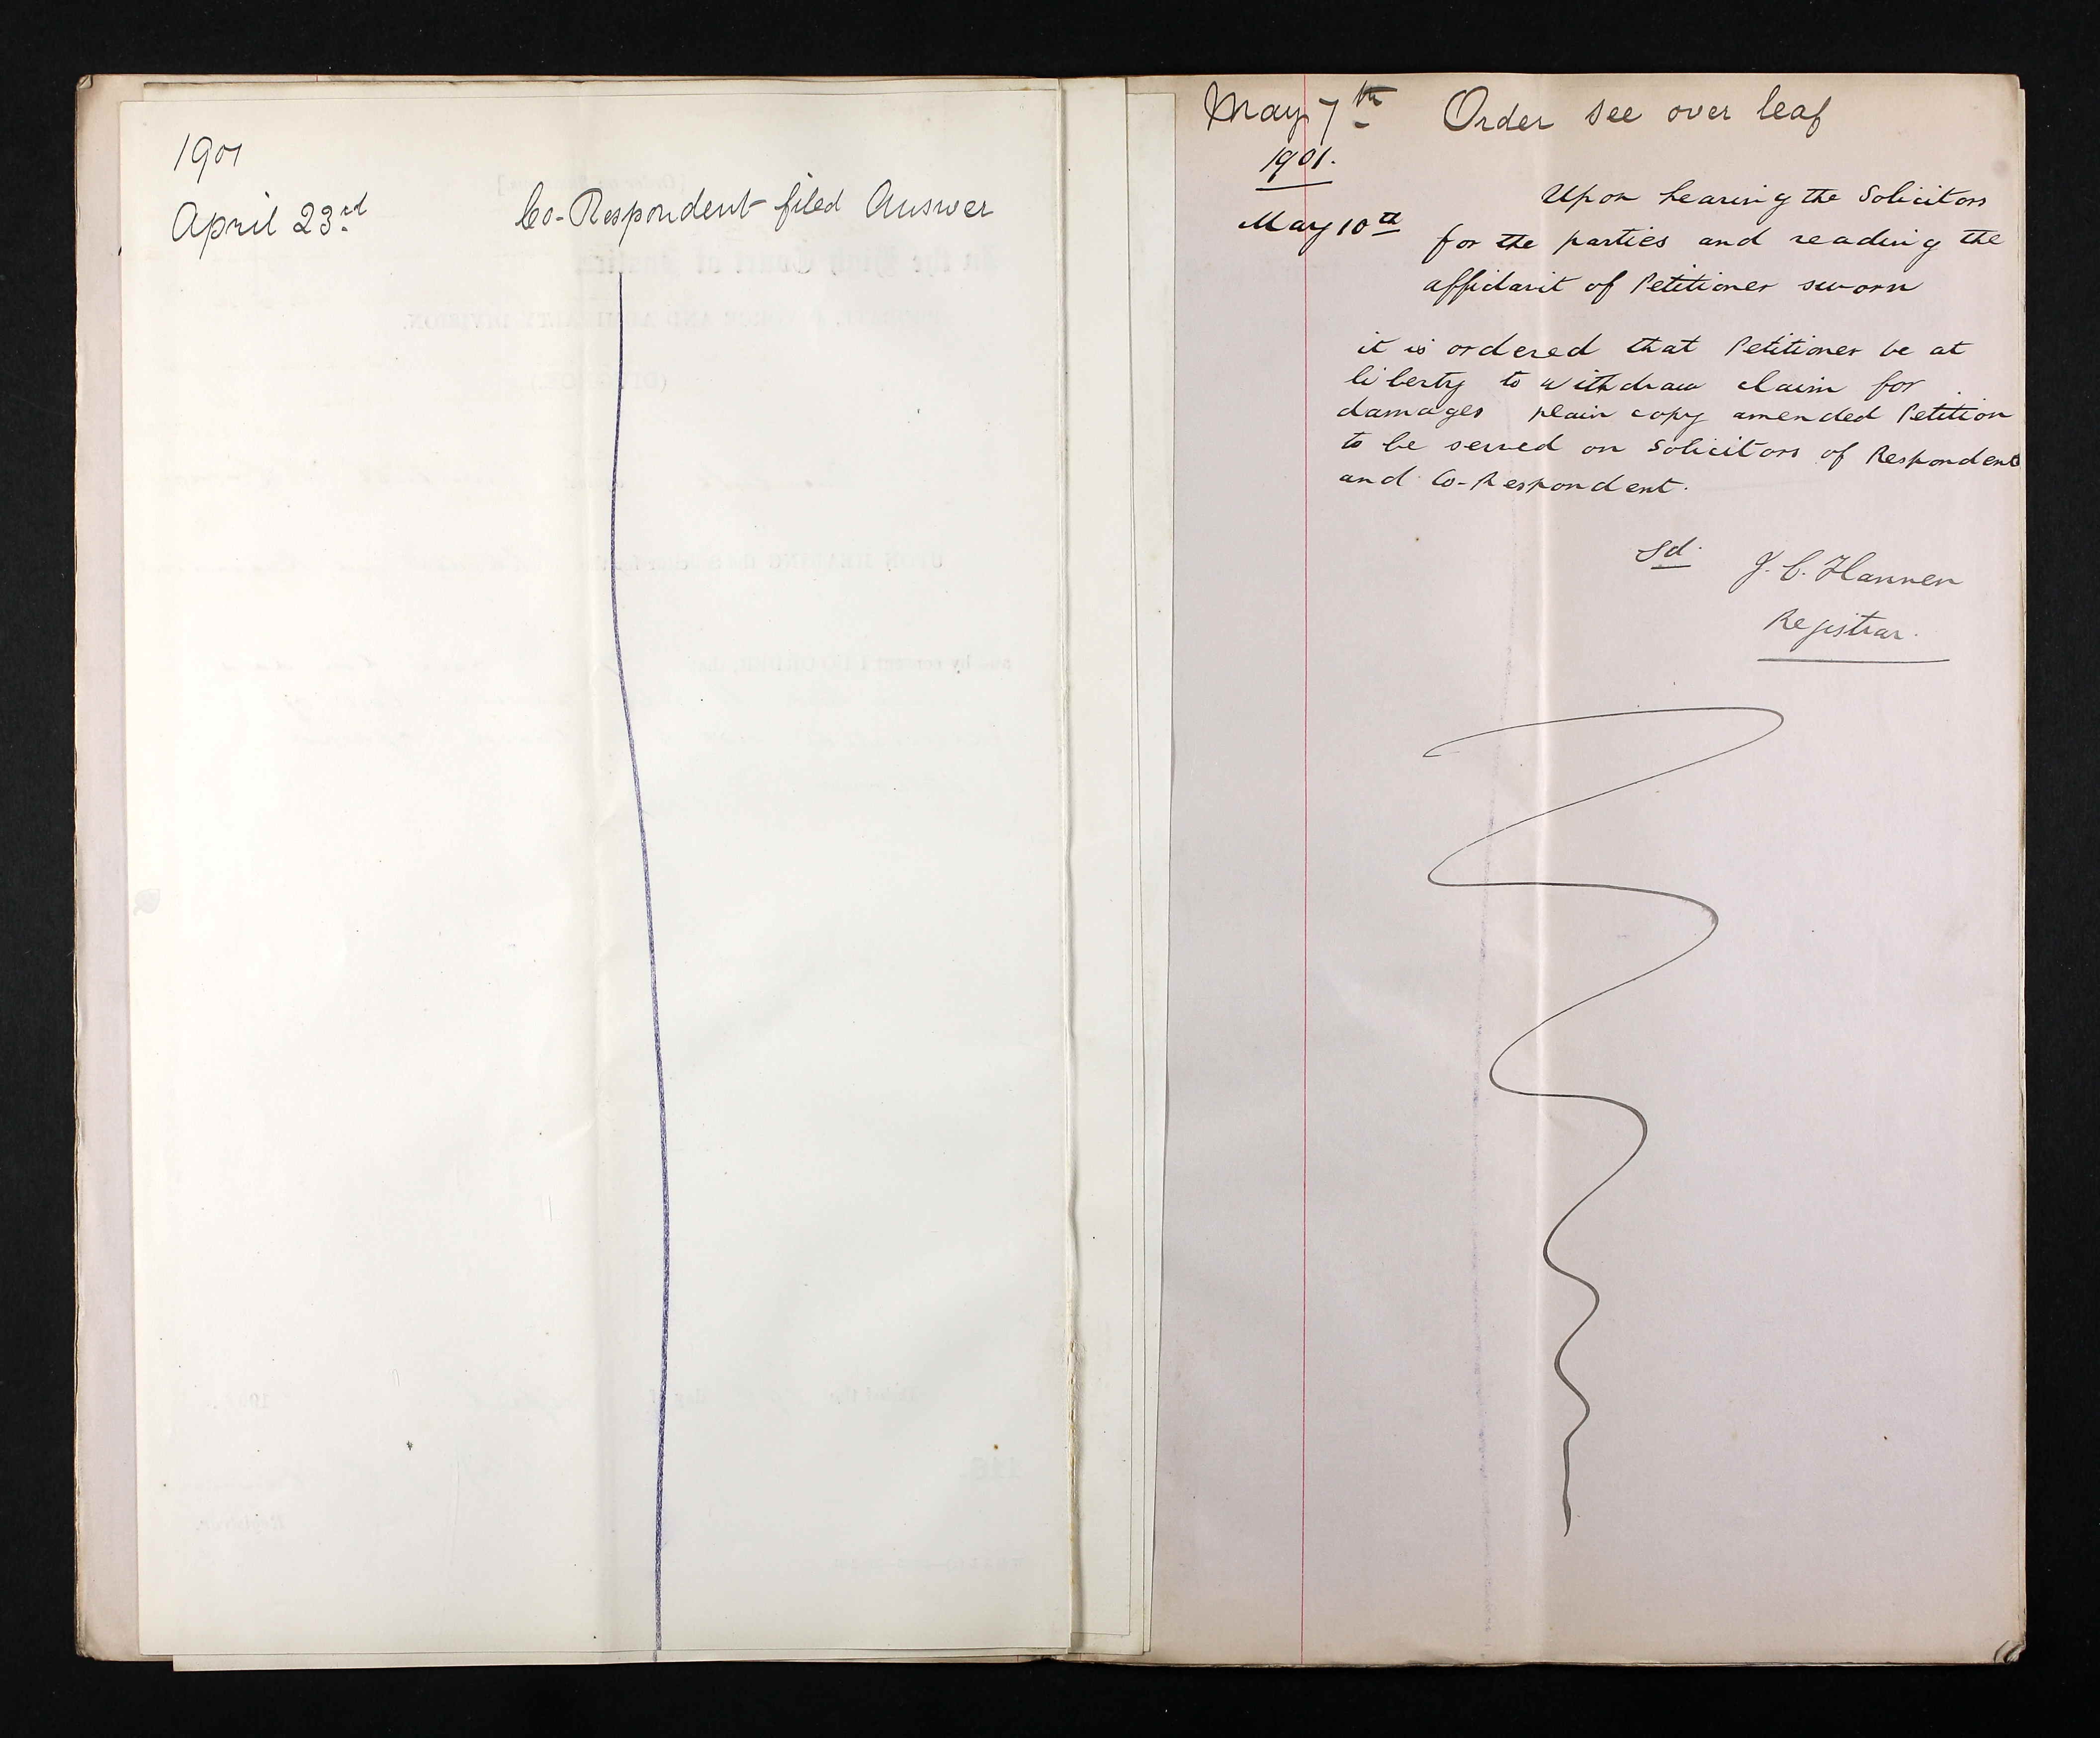 1901
April 23rd Co-Respondent filed Answer
May 7th Order see over leaf
1901.
Upon hearing the Solicitors
May 10th for the parties and reading the
affidavit of Petitioner sworn
it is ordered that Petitioner be at
liberty to withdraw claim for
damages plain copy amended Petition
to be served on Solicitors of Respondent
and Co-Respondent.
Sd. J. C. Hannen
Registrar.